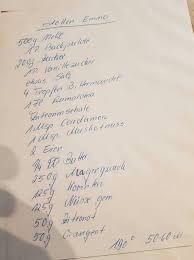 Stollen Emma
500g Mehl
1 P. Backpulver
200g Zucker
1 P. Vanillezucker
etwas Salz
4 Tropfen B. Mandel
1 Fl. Rumaroma
Zitronenschale
1 Msp. Cardamom
1 Msp. Muskatnuss
2 Eier
Butter
250g Magerquark
125g
125g Nüsse gem
50g Zitronat
50g Orangeat
190° 50-60 m